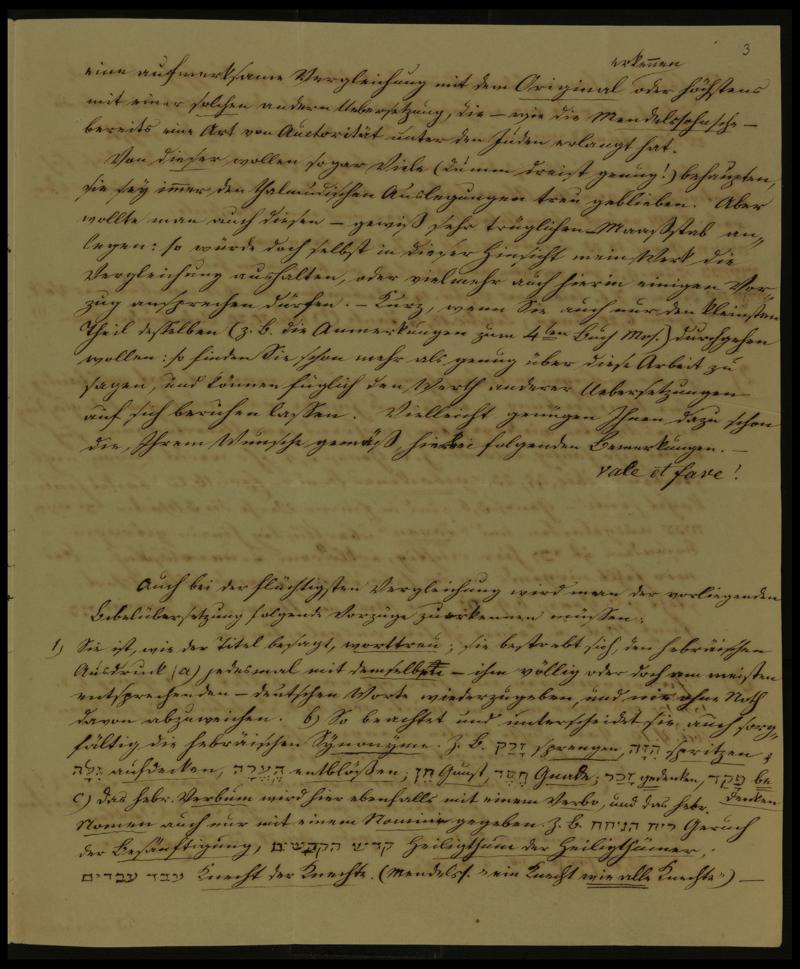 3
erkennen
eine aufmerksame Vergleichung mit dem Original oder höchstens
mit einer solchen andern Uebersetzung, die — wie die Mendelssohnsche —
bereits eine Art von Auctorität unter den Juden erlangt hat.
Von dieser wollen sogar Viele (dumm dreist genug!) behaupten,
sie sey im̅er den thalmudischen Auslegungen treu geblieben. Aber
wollte man auch diesen — gewiß sehr trüglichen Maaßstab an„
legen: so würde doch selbst in dieser Hinsicht mein Werk die
Vergleichung aushalten, oder vielmehr auch hierin einigen Vor„
zug ansprechen dürfen. — Kurz, wenn Sie auch nur den kleinsten
Theil desselben (z. B. die Anmerkungen zum 4ten Buch Mos.) durchgehen
wollen: so finden Sie schon mehr als genug über diese Arbeit zu
sagen, und können füglich den Werth anderer Uebersetzungen
auf sich beruhen lassen. Vielleicht genügen Ihnen dazu schon
die, Ihrem Wunsche gemäß, hierbei folgenden Bemerkungen. —
Vale et fave!
Auch bei der flüchtigsten Vergleichung wird man der vorliegenden
Bibelübersetzung folgende Vorzüge zuerkennen müssen:
1) Sie ist, wie der Titel besagt, worttreu; sie bestrebt sich, den hebräischen
Ausdruck (a) jedesmal mit demselben — ihm völlig oder doch am meisten
entsprechenden — deutschen Worte wiederzugeben, und nie ohne Noth
davon abzuweichen. b) So beachtet und unterscheidet sie auch sorg„
fältig die hebräischen Synonyme. Z. B. זָרַק sprengen, הִזָּה spritzen;
גִּלָּה aufdecken, הֶעֱרָה entblößen; חֵן Gunst, חֶסֶד Gnade; זָכַר gedenken, פָּקַד be
denken
c) Das hebr. Verbum wird hier ebenfalls mit einem Verbo, und das hebr.
Nomen auch nur mit einem Nomini gegeben. Z. B. ריח הניחח Geruch
der Besänftigung, קדש הקדשים Heiligthum der Heiligthümer,
עבד עבדים Knecht der Knechte. (Mendelss. „ein Knecht wie alle Knechte“) —